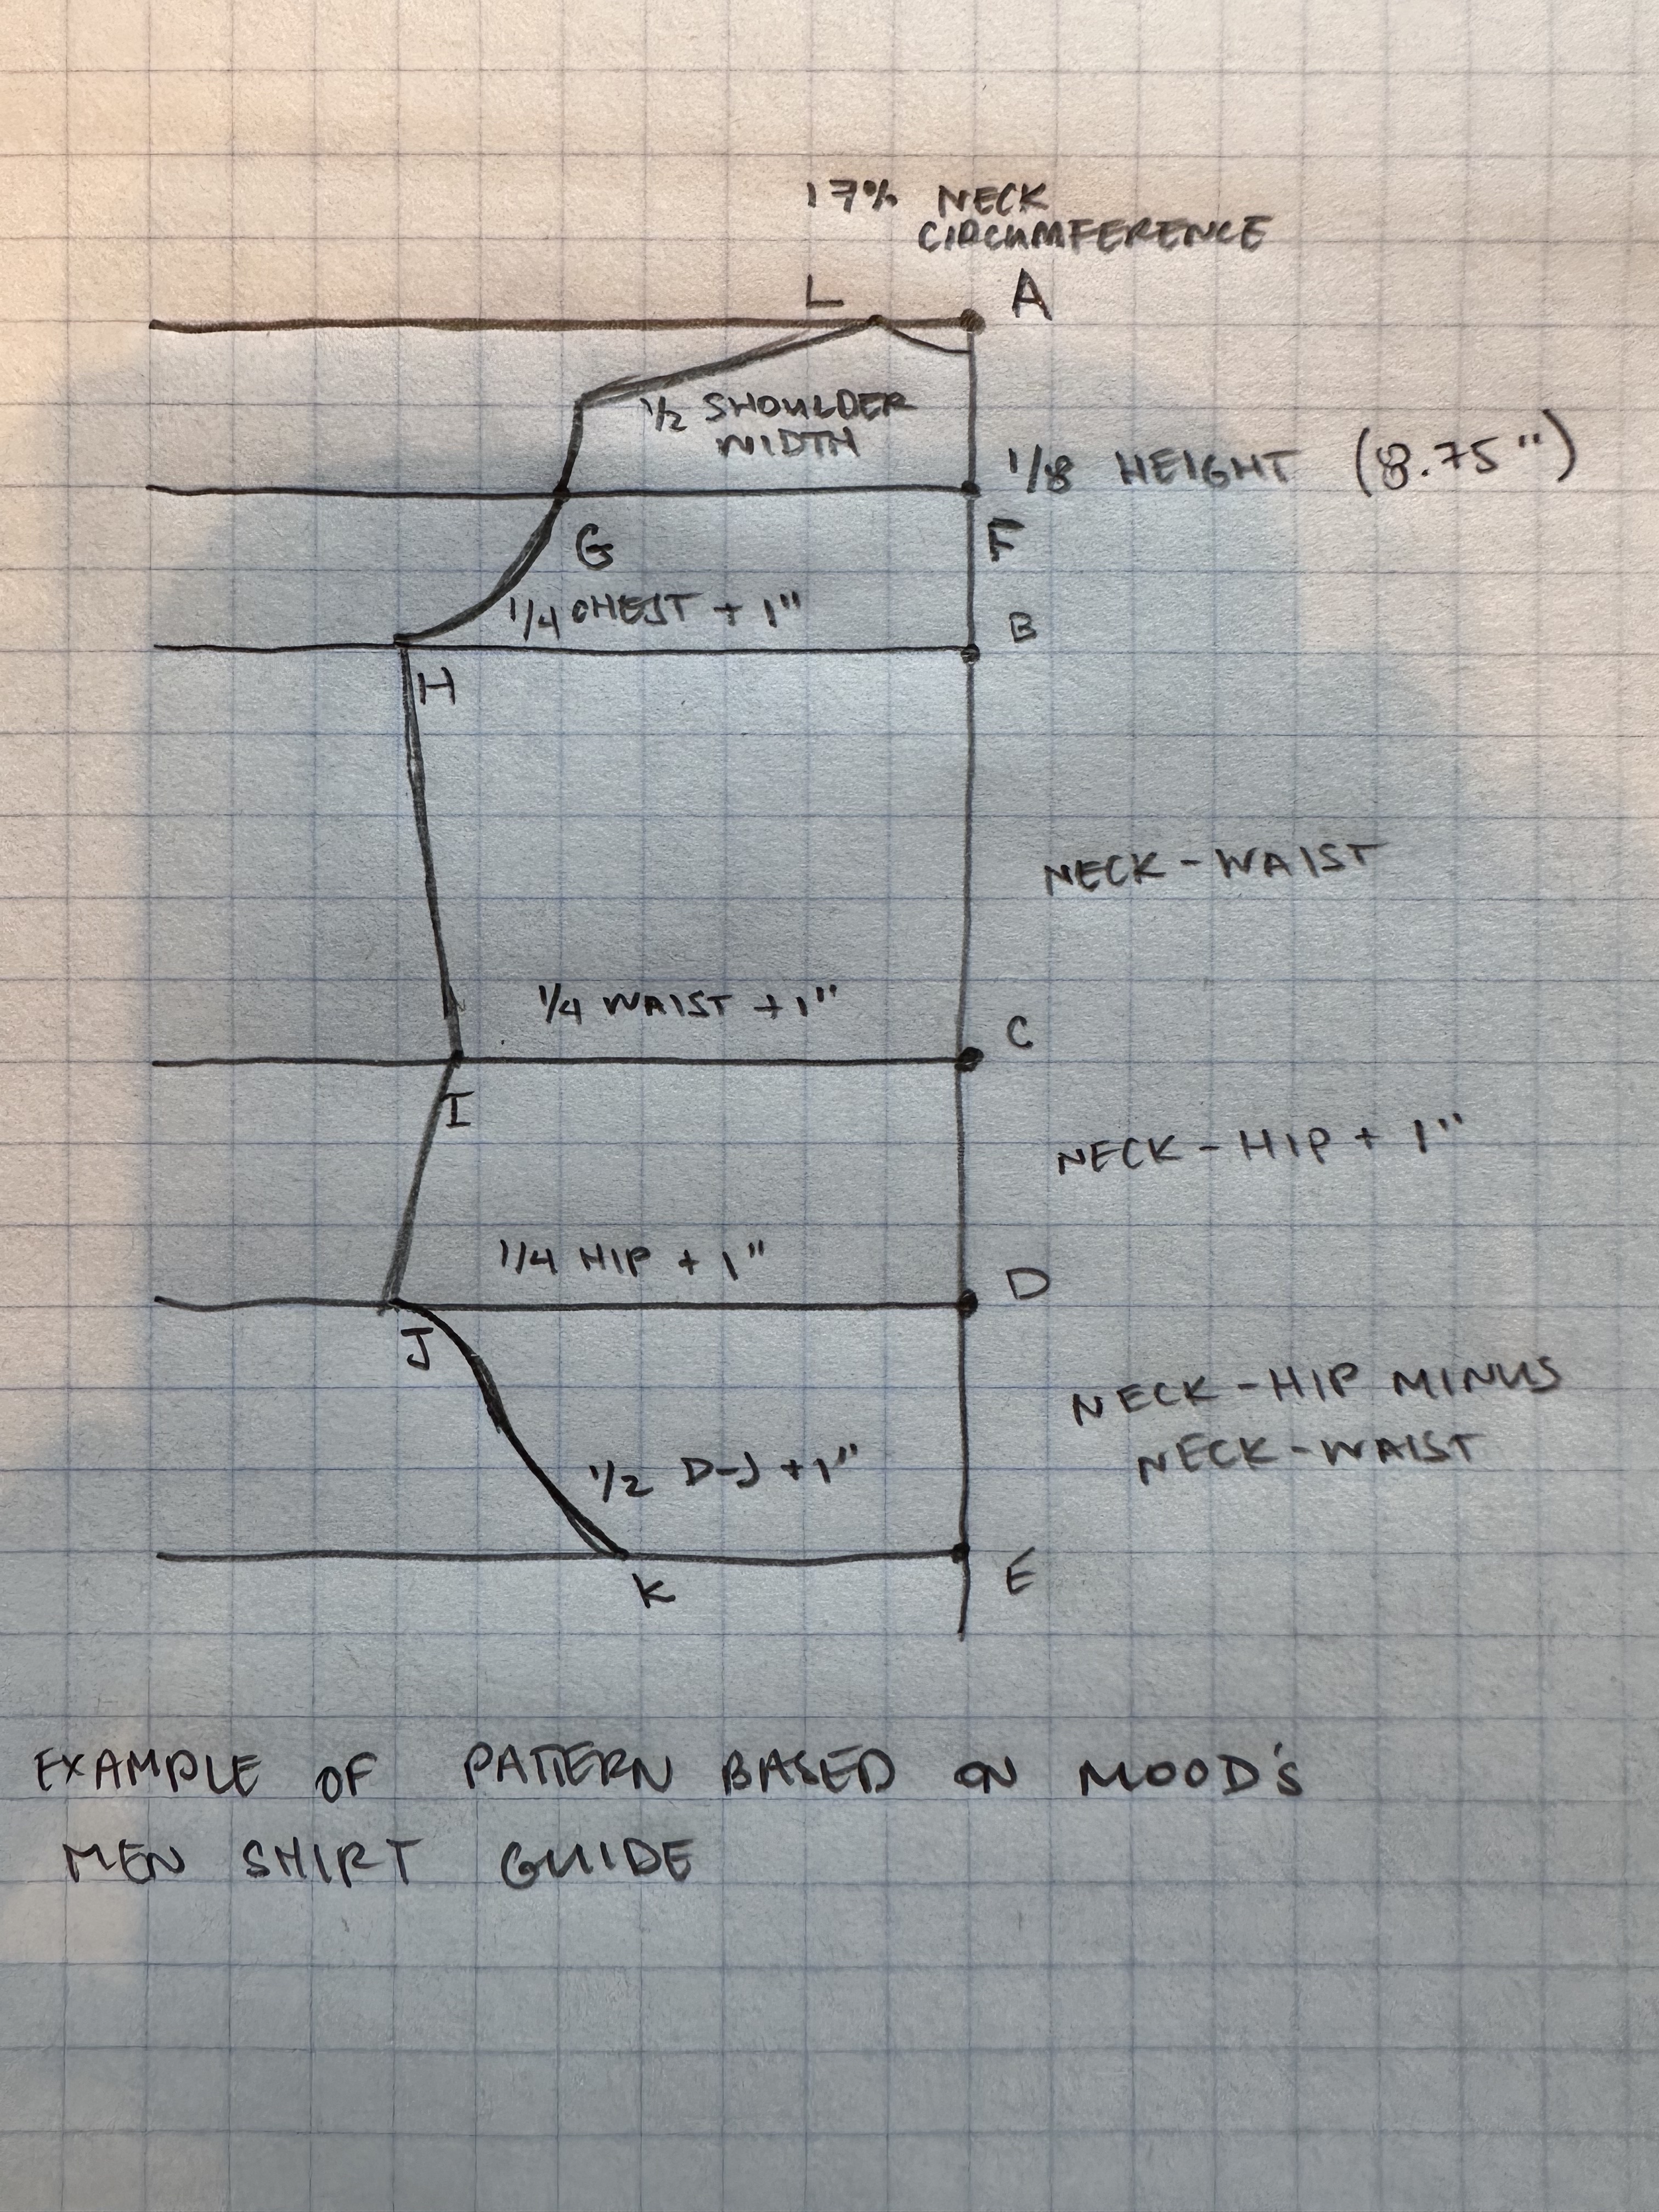 17% NECK
CIRCUMFERENCE
L
A
1/2 SHOULDER
WIDTH
1/8 HEIGHT (8.75")
G
F
1/4 CHEST + 1"
B
H
NECK-WAIST
1/4 WAIST + 1"
C
I
NECK-HIP + 1"
1/4 HIP + 1"
D
J
NECK-HIP MINUS
NECK-WAIST
1/2 D-J + 1"
K
E
EXAMPLE OF PATTERN BASED ON MOOD'S
MEN SHIRT GUIDE